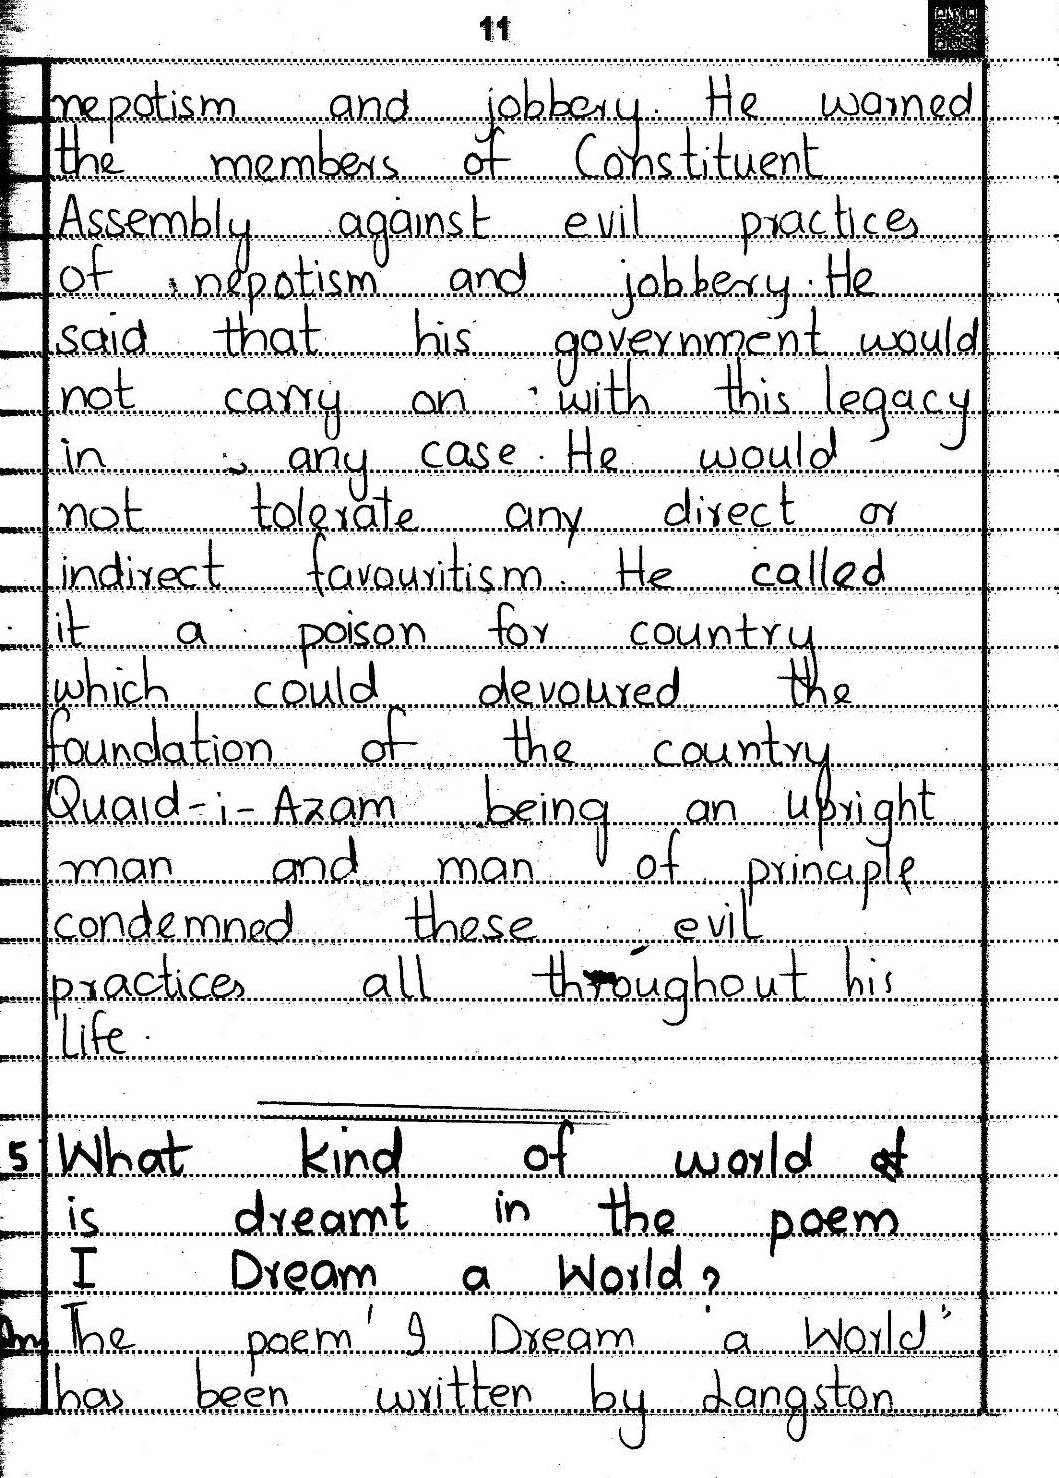 11
nepotism and jobbery. He warned
the members of Constituent
Assembly against evil practices
of nepotism and jobbery. He
said that his government would
not carry on with this legacy
in any case. He would
not tolerate any direct or
indirect favouritism. He called
it a poison for country
which could devoured the
foundation of the country
Quaid-i-Azam being an upright
man and man of principle
condemned these evil
practices all throughout his
life.
5 What kind of world of
is dreamt in the poem
I Dream a World?
Ans The poem 'I Dream a World'
has been written by Langston